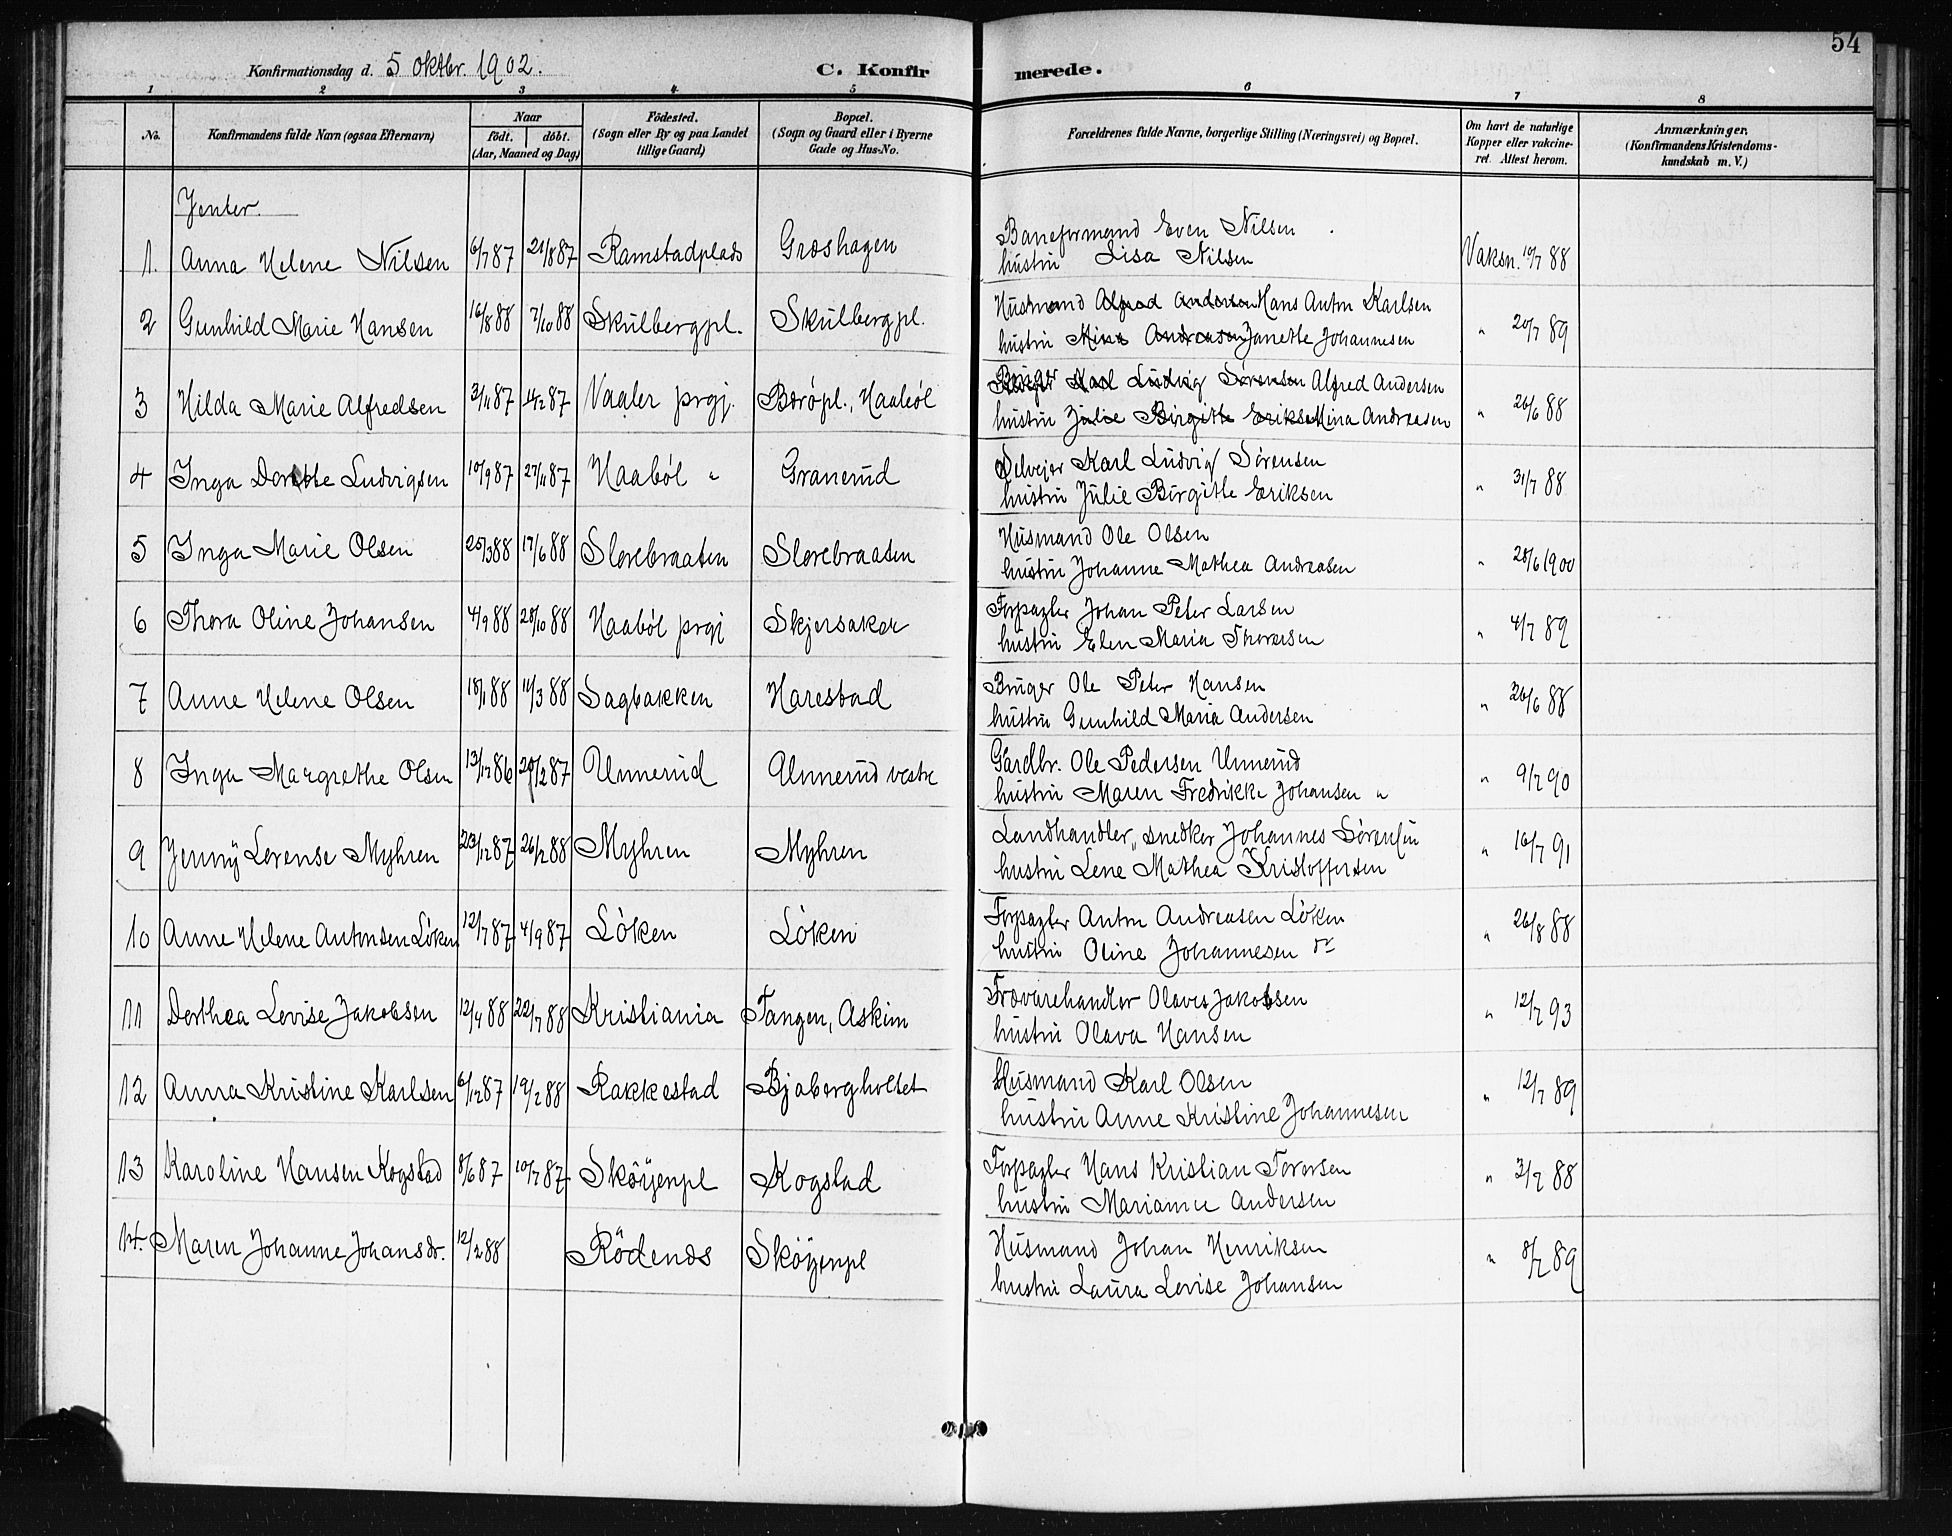 54
Konfirmationsdag d. 5 oktbr. 1902.
C. Konfirmerede.
1 2 3 4 5 6 7 8
No. Konfirmandens fulde Navn (ogsaa Efternavn) Naar födt. döbt. (Aar, Maaned og Dag) Födested. (Sogn eller By og paa Landet tillige Gaard) Bopæl. (Sogn og Gaard eller i Byerne Gade og Hus-No. Forældrenes fulde Navne, borgerlige Stilling (Næringsvei) og Bopæl. Om havt de naturlige Kopper eller vakcineret. Attest herom. Anmærkninger. (Konfirmandens Kristendomskundskab m. V.)
Jenter.
1. Anna Helene Nilsen 6/7 87 21/8 87 Ramstadplads Græshagen Baneformand Even Nilsen Vaksn. 10/7 88
hustru Lisa Nilsen
2 Gunhild Marie Hansen 16/8 88 7/10 88 Skulbergpl. Skulbergpl. Husmand Alfred Andersen Hans Anton Karlsen " 20/7 89
hustru Mina Andreasen Janette Johannesen
3 Hilda Marie Alfredsen 3/11 87 4/12 87 Vaaler prgj. Böröpl., Haaböl Bruger Karl Ludvig Sörensen Alfred Andersen " 26/6 88
hustru Julie Birgitte Eriksen Mina Andreasen
4 Inga Dorthe Ludvigsen 10/9 87 27/11 87 Haaböl " Granerud Selvejer Karl Ludvig Sörensen " 31/7 88
hustru Julie Birgitte Eriksen
5 Inga Marie Olsen 25/3 88 17/6 88 Slorebraaten Slorebraaten Husmand Ole Olsen " 28/6 1900
hustru Johanne Mathea Andreasen
6 Thora Oline Johansen 4/9 88 28/10 88 Haaböl prgj Skjersaker Forpagter Johan Peter Larsen " 4/7 89
hustru Elen Maria Thoresen
7 Anne Helene Olsen 18/1 88 11/3 88 Sagbakken Harestad Bruger Ole Peter Hansen " 26/6 88
hustru Gunhild Maria Andersen
8 Inga Margrethe Olsen 13/12 86 20/2 87 Unnerud Unnerud vestre Gardbr. Ole Pedersen Unnerud " 9/7 90
hustru Maren Fredrikke Johansen "
9 Jenny Lorense Myhren 23/12 87 26/2 88 Myhren Myhren Landhandler, snedker Johannes Sörensen " 16/7 91
hustru Lene Mathea Kristoffersen
10 Anne Helene Antonsen Löken 12/7 87 4/9 87 Löken Löken Forpagter Anton Andreasen Löken " 26/8 88
hustru Oline Johannesen do
11 Dorthea Lovise Jakobsen 12/4 88 22/7 88 Kristiania Tangen, Askim Trævarehandler Olaves Jakobsen " 12/7 93
hustru Olava Hansen
12 Anna Kristine Karlsen 6/12 87 19/2 88 Rakkestad Bjabergholtet Husmand Karl Olsen " 12/7 89
hustru Anne Kristine Johannesen
13 Karoline Hansen Kogstad 8/6 87 10/7 87 Sköyenpl Kogstad Forpagter Hans Kristian Torersen " 3/7 88
hustru Marianne Andersen
14. Maren Johanne Johansdr. 12/2 88 Rödenæs Sköyenpl Husmand Johan Henriksen " 8/7 89
hustru Laura Lovise Johansen